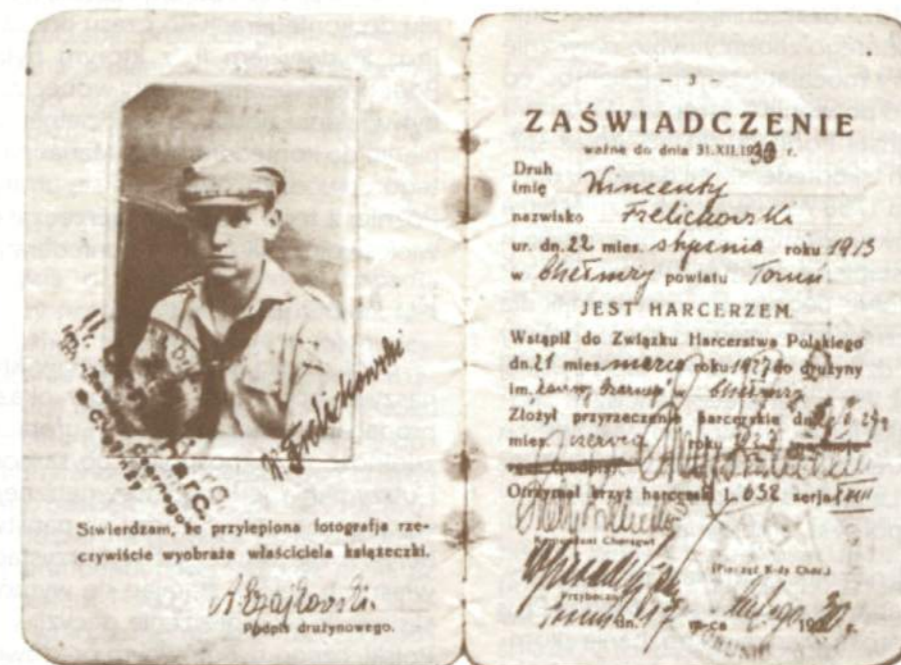 W Frelichowski
Stwierdzam, że przylepiona fotografja rze-
czywiście wyobraża właściciela książeczki.
A. Czajkowski.
Podpis drużynowego.
– 3 –
ZAŚWIADCZENIE
ważne do dnia 31.XII.1930 r.
Druh
imię Wincenty
nazwisko Frelichowski
ur. dn. 22 mies. stycznia roku 1913
w Chełmży powiatu Toruń
JEST HARCERZEM.
Wstąpił do Związku Harcerstwa Polskiego
dn. 21 mies. marca roku 1927 do drużyny
im. Zawiszy Czarnego w Chełmży
Złożył przyrzeczenie harcerskie dn.
mies. czerwca roku 1927
Otrzymał krzyż harcerski L. 652 serja
Komendant Chorągwi
(Pieczęć K-dy Chor.)
Przyboczny
Toruń dn. 17 m-ca lutego 1930 r.